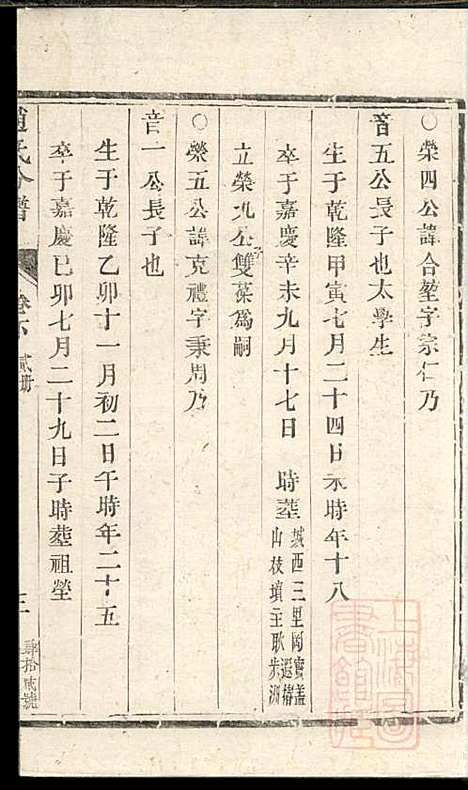 ○榮四公諱合堃字宗仁乃
音五公長子也太學生
生于乾隆甲寅七月二十四日未時年十八
卒于嘉慶辛未九月十七日 時塟城西三里岡寶蓋
山枝塡主耿
立榮九公雙葆爲嗣
○榮五公諱克禮字秉周乃
音一公長子也
生于乾隆乙卯十一月初二日午時年二十五
卒于嘉慶己卯七月二十九日子時塟祖塋
趙氏分譜 卷 貳册 三 肆拾貳號
上海圖書館藏